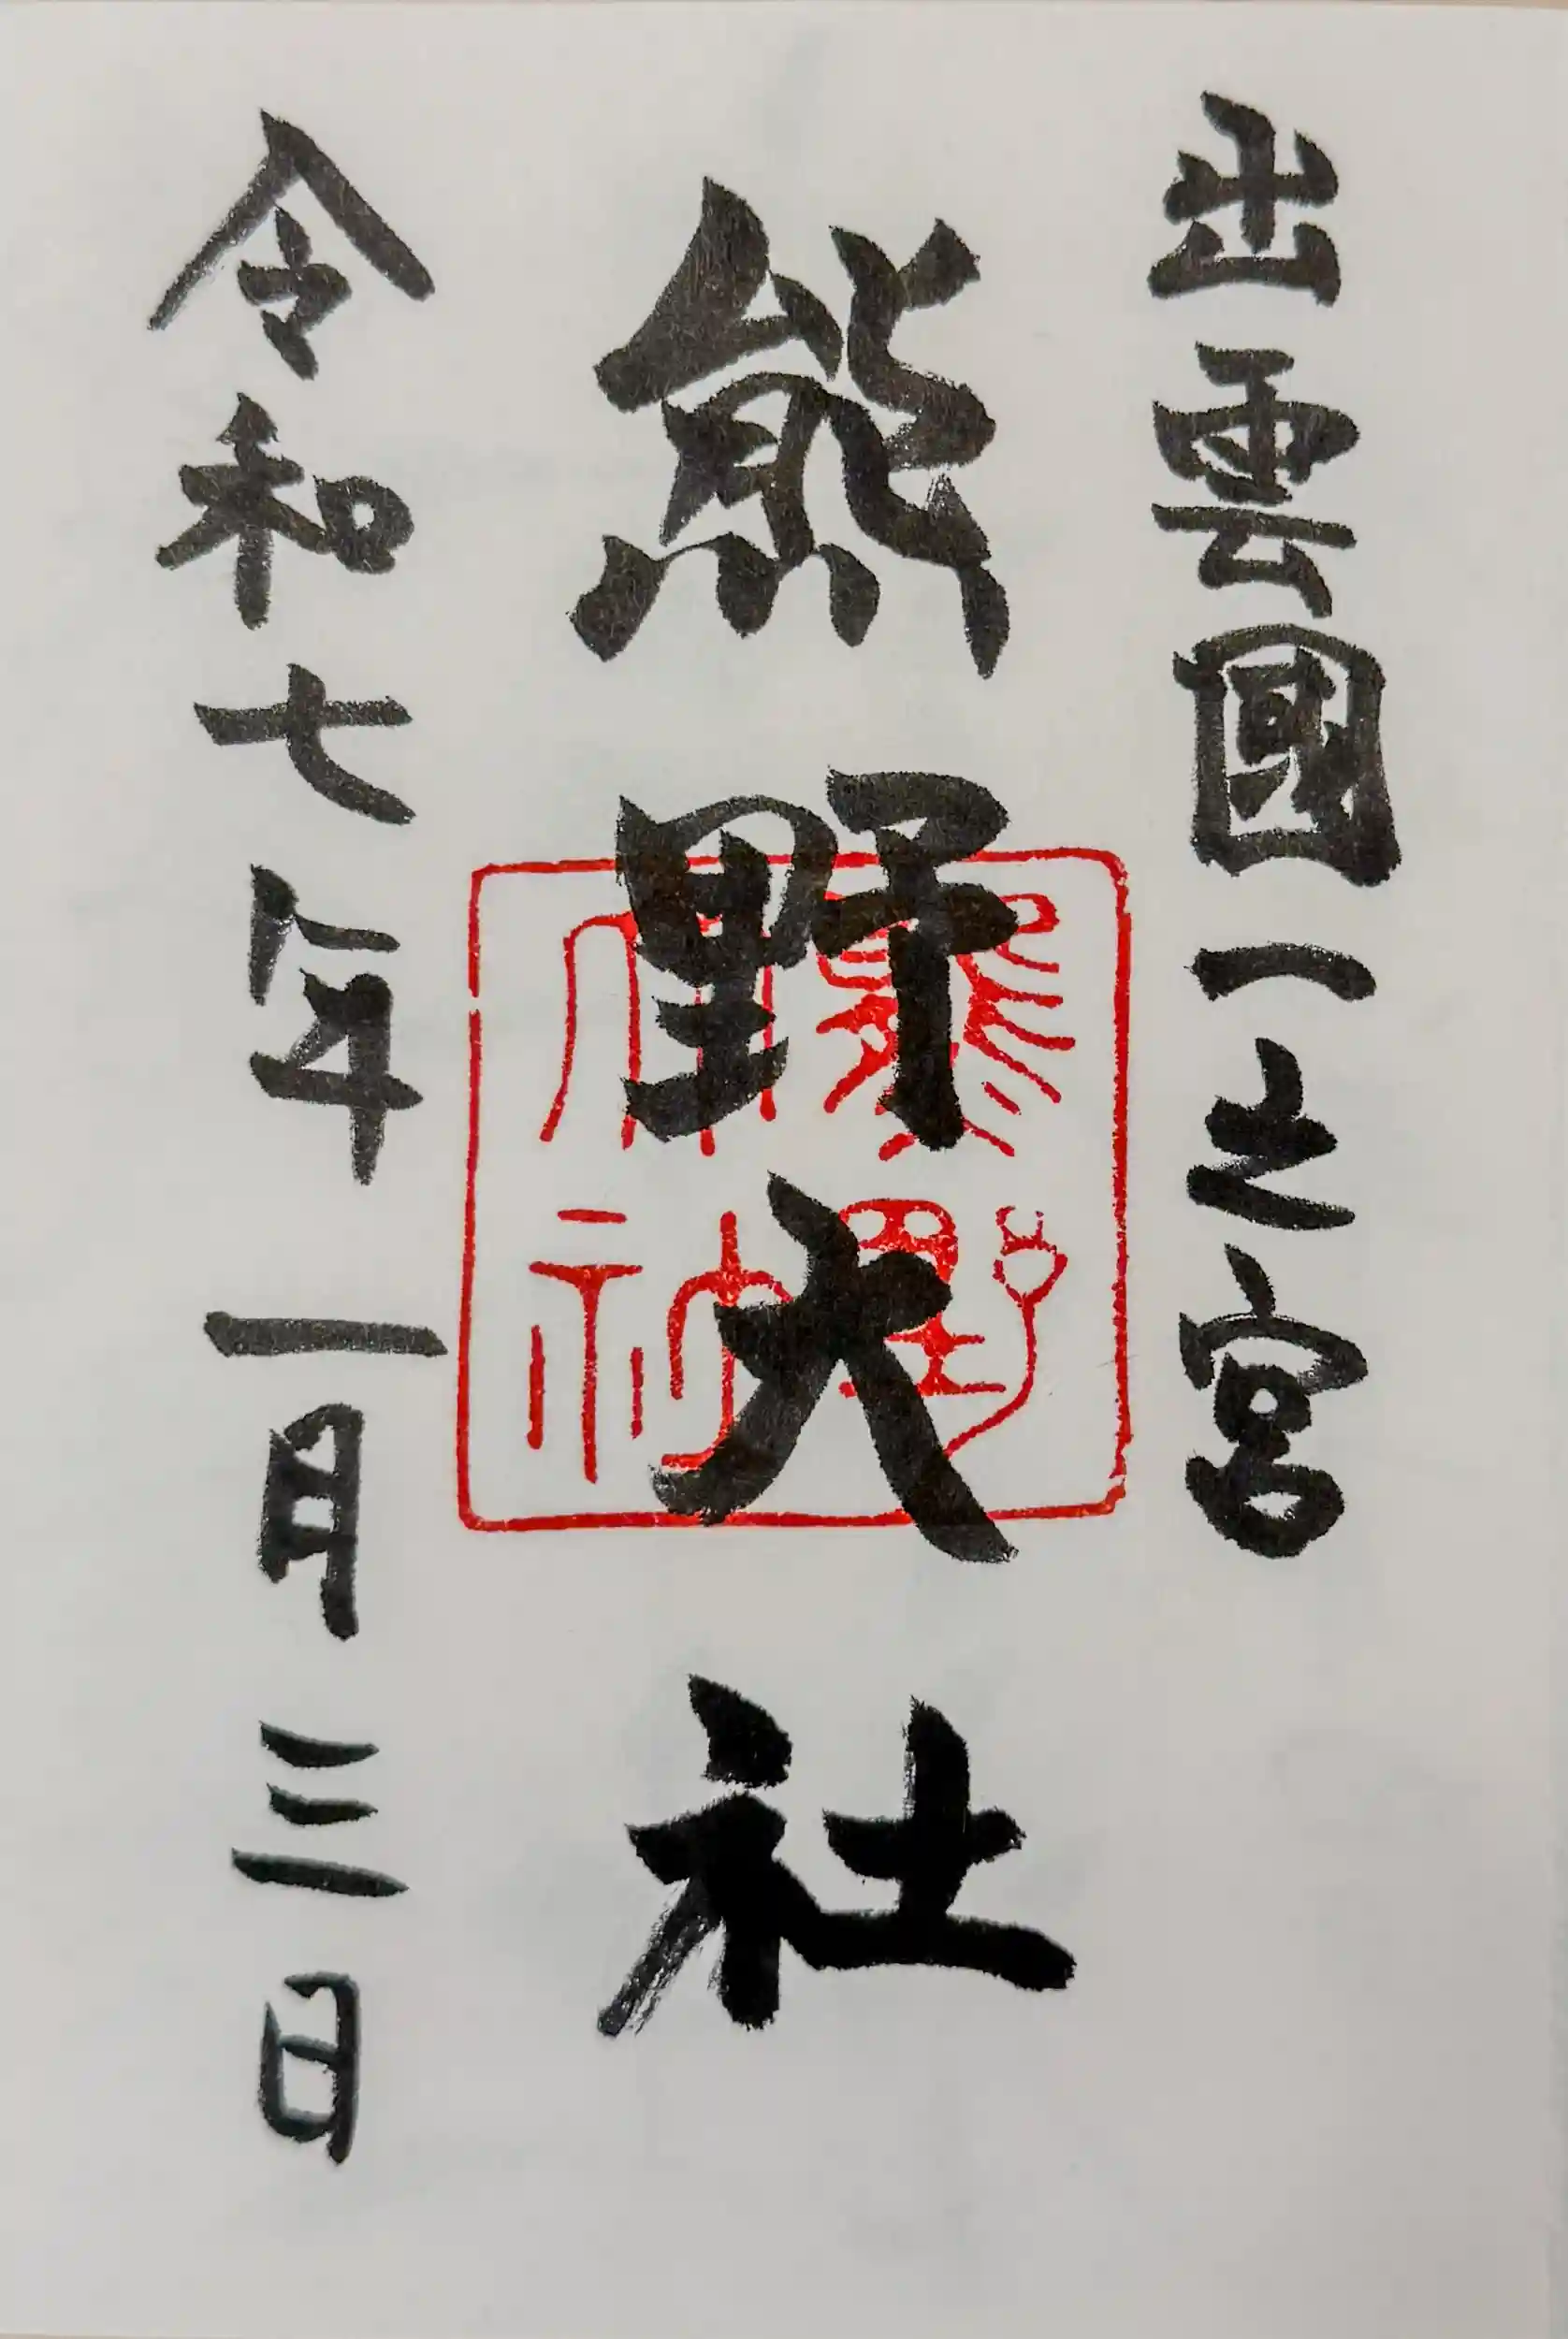 出雲國一之宮
熊野大社
令和七年一月三日